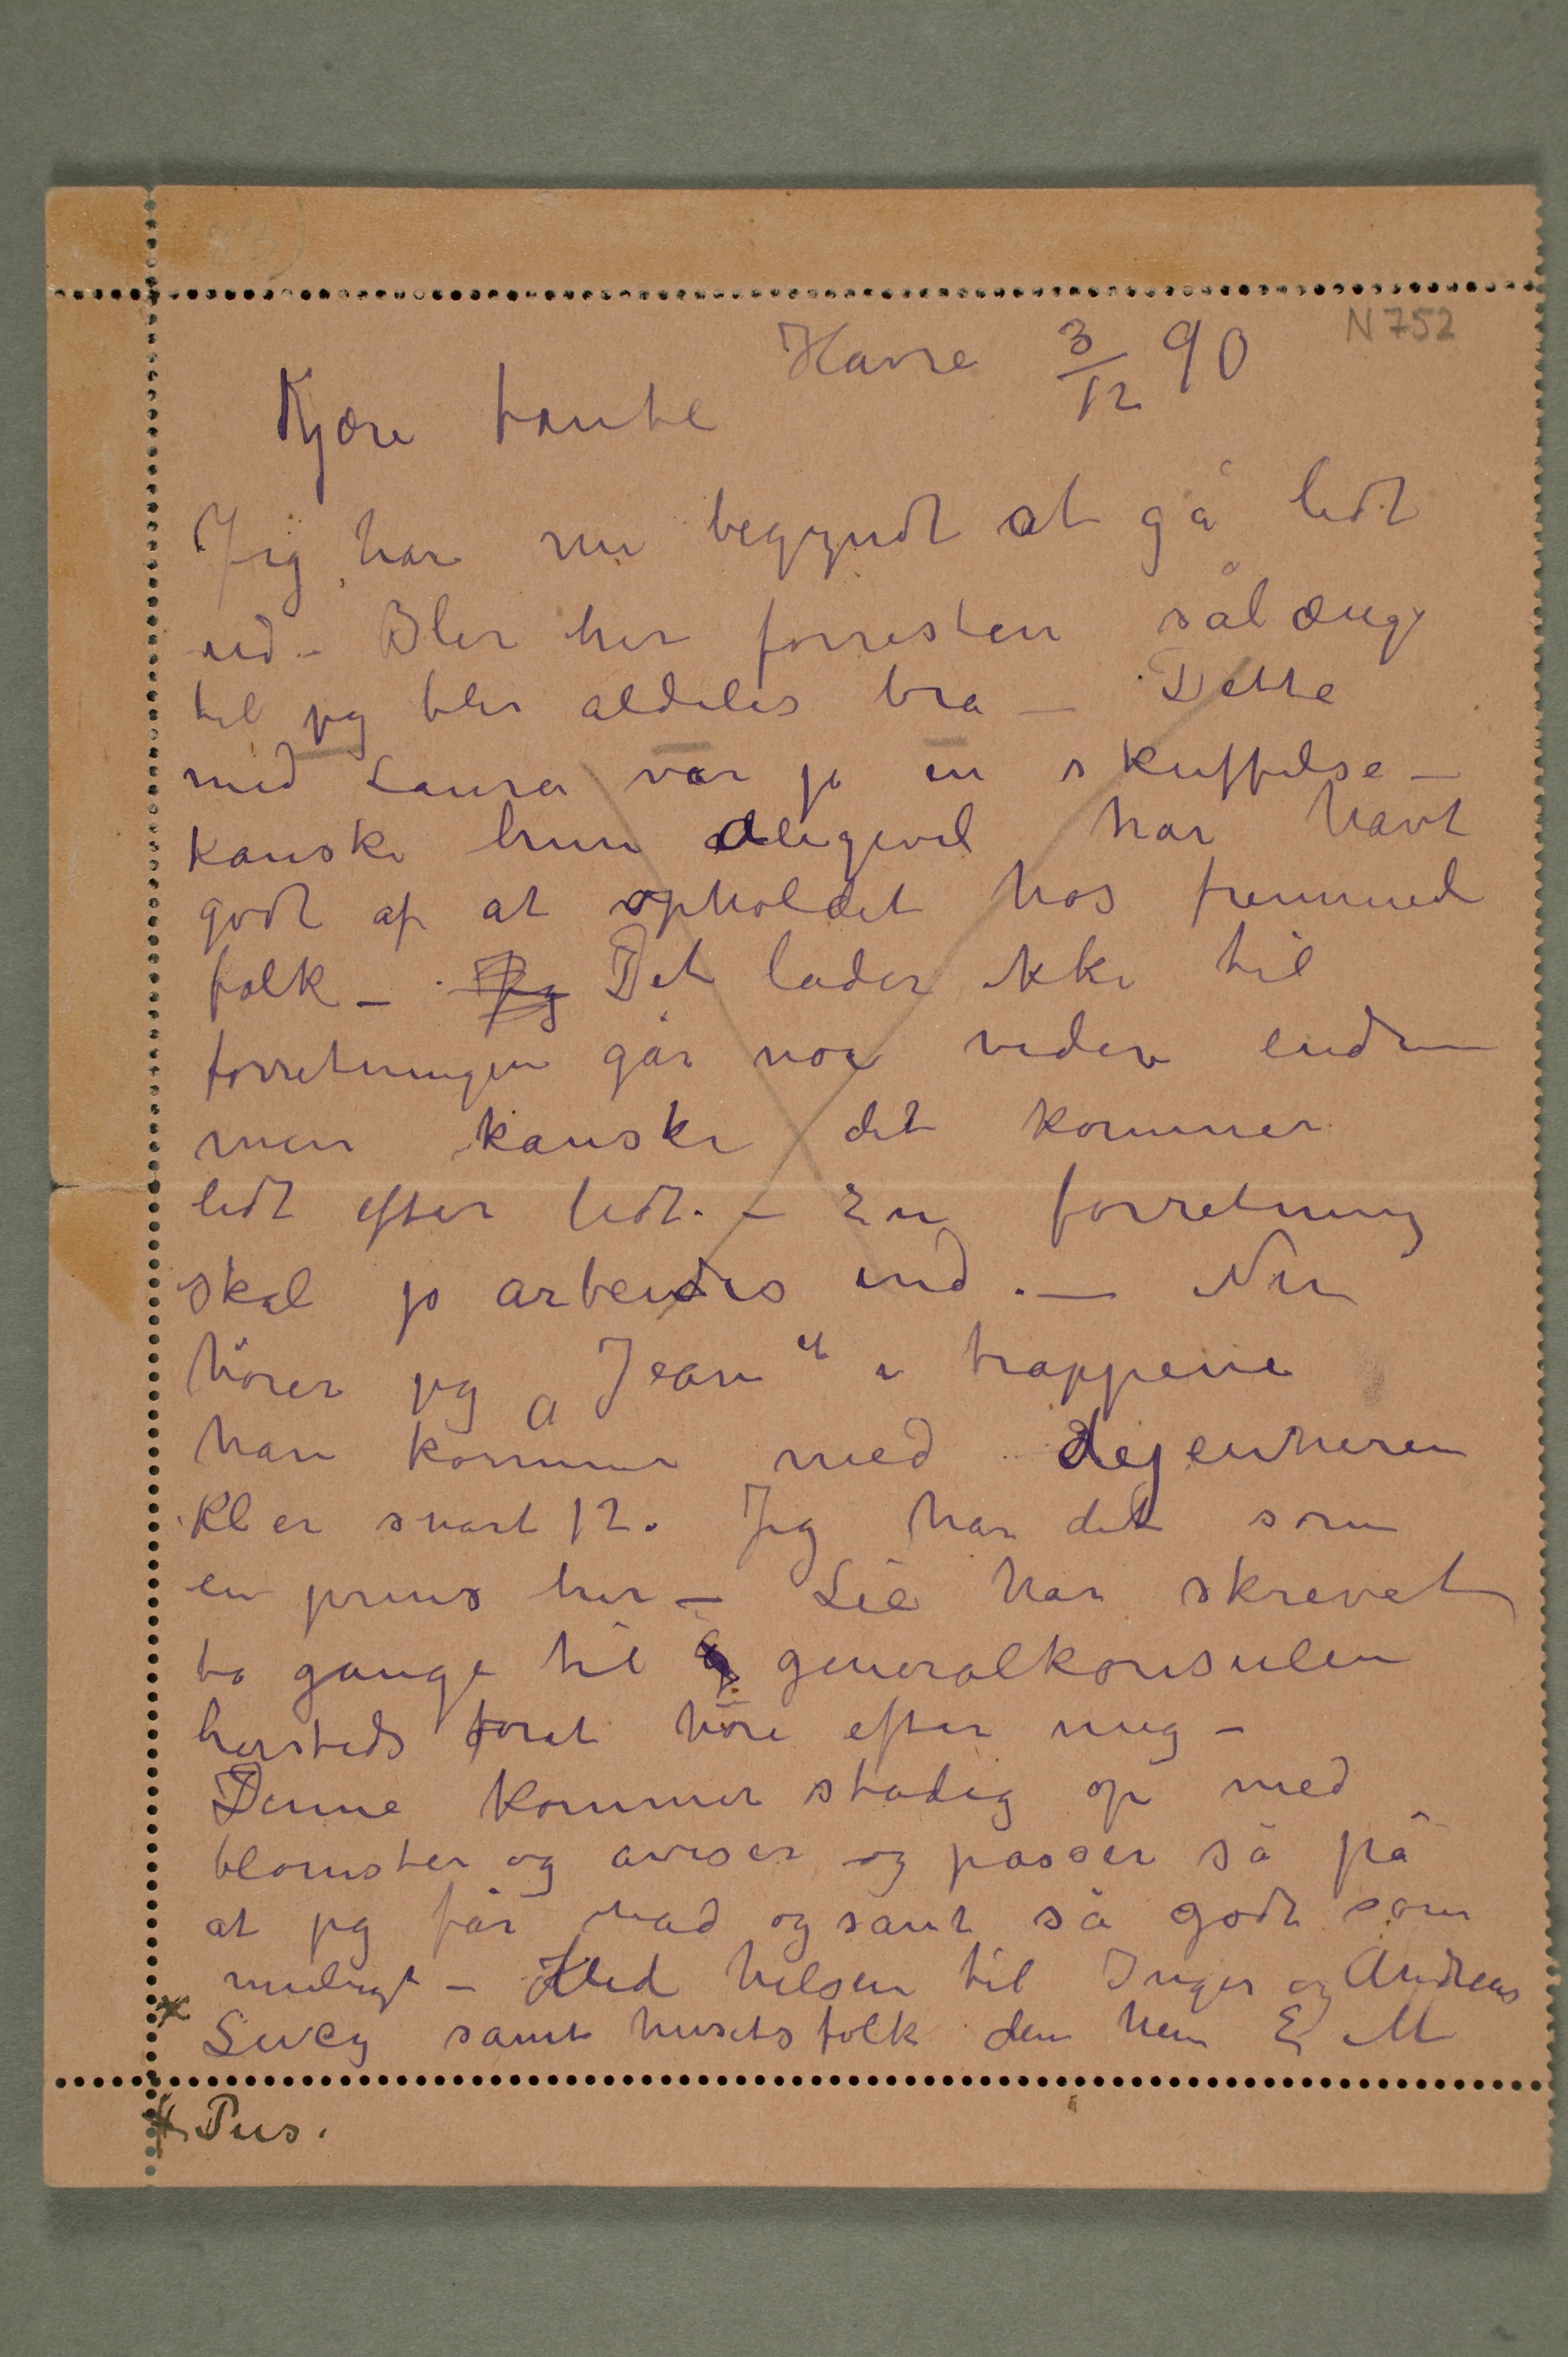 Havre 3/12 90
N 752
Kjære tante
Jeg har nu begyndt at gå lidt
ud – Blir her forresten sålænge
til jeg blir aldeles bra – Dette
med Laura var jo en skuffelse –
kanske hun alligevel har havt
godt af at opholdet hos fremmede
folk – Jeg Det lader ikke til
forretningen går noe videre endnu
men kanske det kommer
lidt efter lidt. – En forretning
skal jo arbeides ind. – Nu
hører jeg „Jean“ i trappene
han kommer med dejeuneren
Kl er snart 12. Jeg har det som
en prins her – Lie har skrevet
to gange til generalkonsulen
hersteds forat høre efter mig –
Denne kommer stadig op med
blomster og aviser og passer så på
at jeg får mad og sånt så godt som
muligt – Med hilsen til Inger og Andreas
× Lucy samt husets folk din hen E M
× Pus.